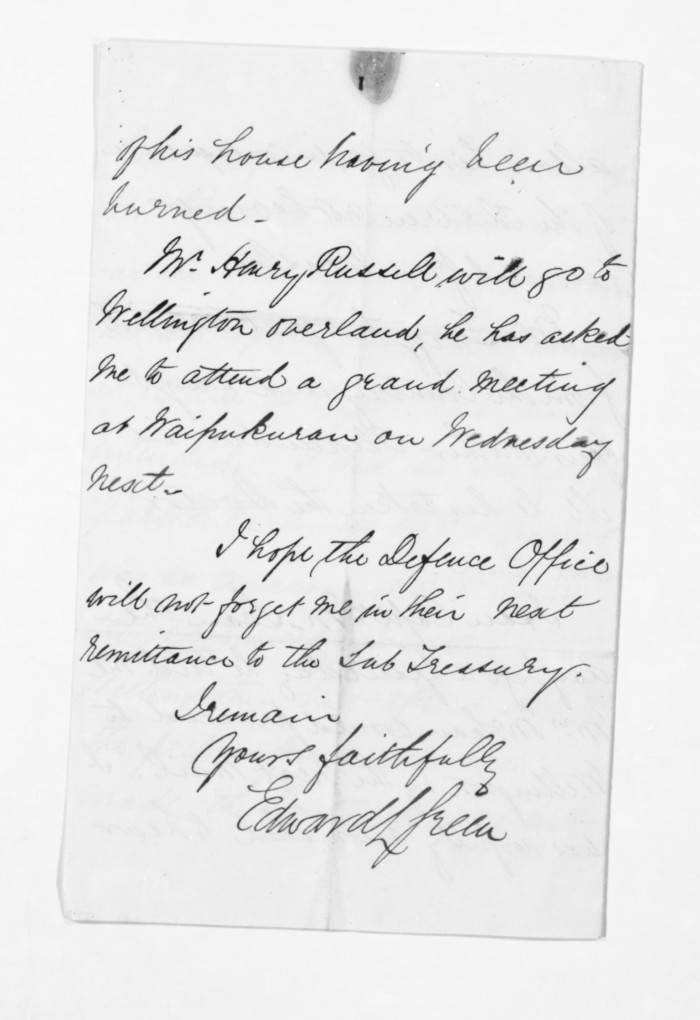 of his house having been
burned -
Mr. Henry Russell will go to
Wellington overland, he has asked
me to attend a grand meeting
at Waipukurau on Wednesday
next -
I hope the Defence Office
will not forget me in their next
remittance to the Sub Treasury.
I remain
Yours faithfully
Edward L Green